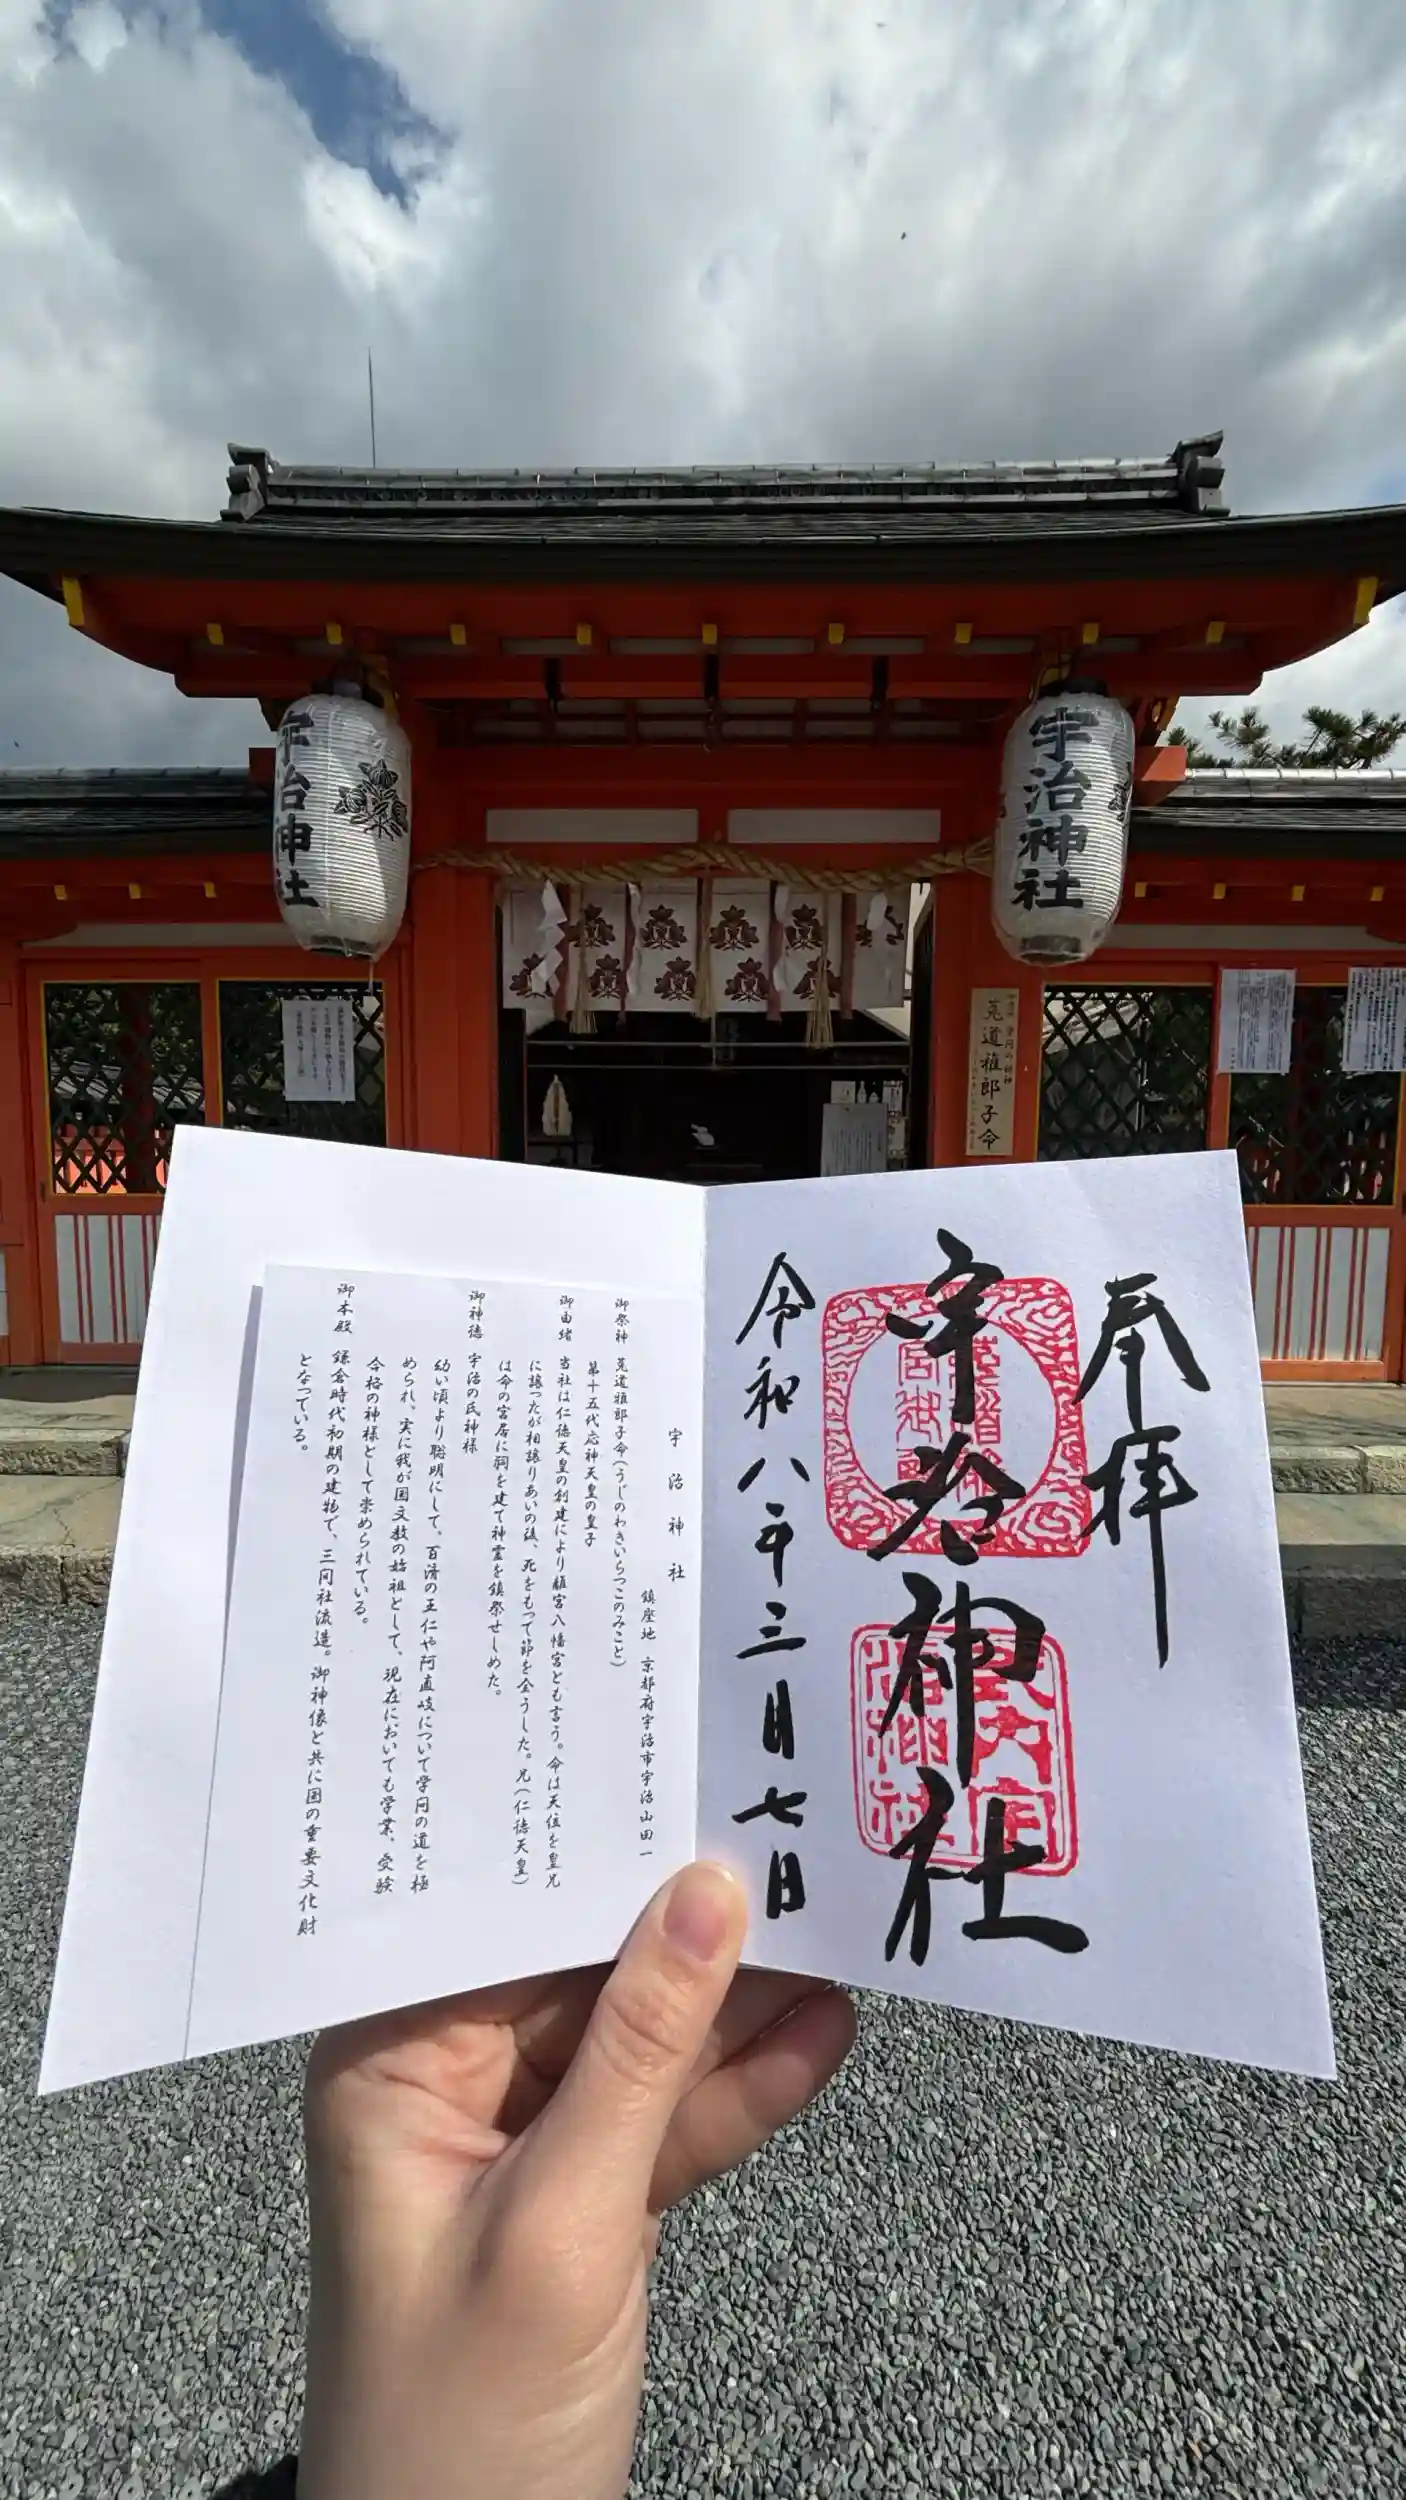 宇治神社
宇治神社
莵道稚郎子命
奉拝
宇治神社
令和八年三月七日
宇治神社
鎮座地 京都府宇治市宇治山田一
御祭神 莵道稚郎子命(うじのわきいらつこのみこと)
第十五代応神天皇の皇子
御由緒 当社は仁徳天皇の創建により離宮八幡宮とも言う。命は天位を皇兄
に譲つたが相譲りあいの後、死をもつて節を全うした。兄(仁徳天皇)
は命の宮居に祠を建て神霊を鎮祭せしめた。
御神徳 宇治の氏神様
幼い頃より聡明にして、百済の王仁や阿直岐について学問の道を極
められ、実に我が国文教の始祖として、現在においても学業、受験
合格の神様として崇められている。
御本殿 鎌倉時代初期の建物で、三間社流造。御神像と共に国の重要文化財
となつている。